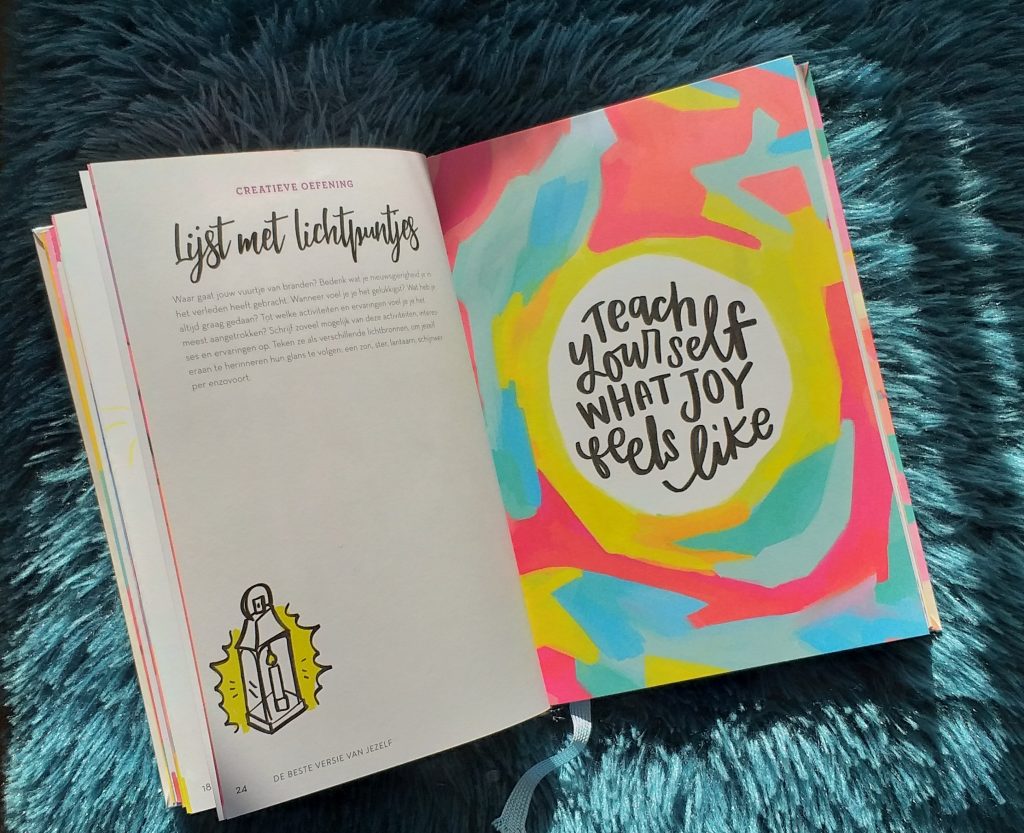 CREATIEVE OEFENING
Lijst met lichtpuntjes
Waar gaat jouw vuurtje van branden? Bedenk wat je nieuwsgierigheid je in
het verleden heeft gebracht. Wanneer voel je je het gelukkigst? Wat heb je
altijd graag gedaan? Tot welke activiteiten en ervaringen voel je je het
meest aangetrokken? Schrijf zoveel mogelijk van deze activiteiten, interes-
ses en ervaringen op. Teken ze als verschillende lichtbronnen, om jezelf
eraan te herinneren hun glans te volgen: een zon, ster, lantaarn, schijnwer-
per enzovoort.
18
24
DE BESTE VERSIE VAN JEZELF
Teach
yourself
WHAT JOY
feels
like